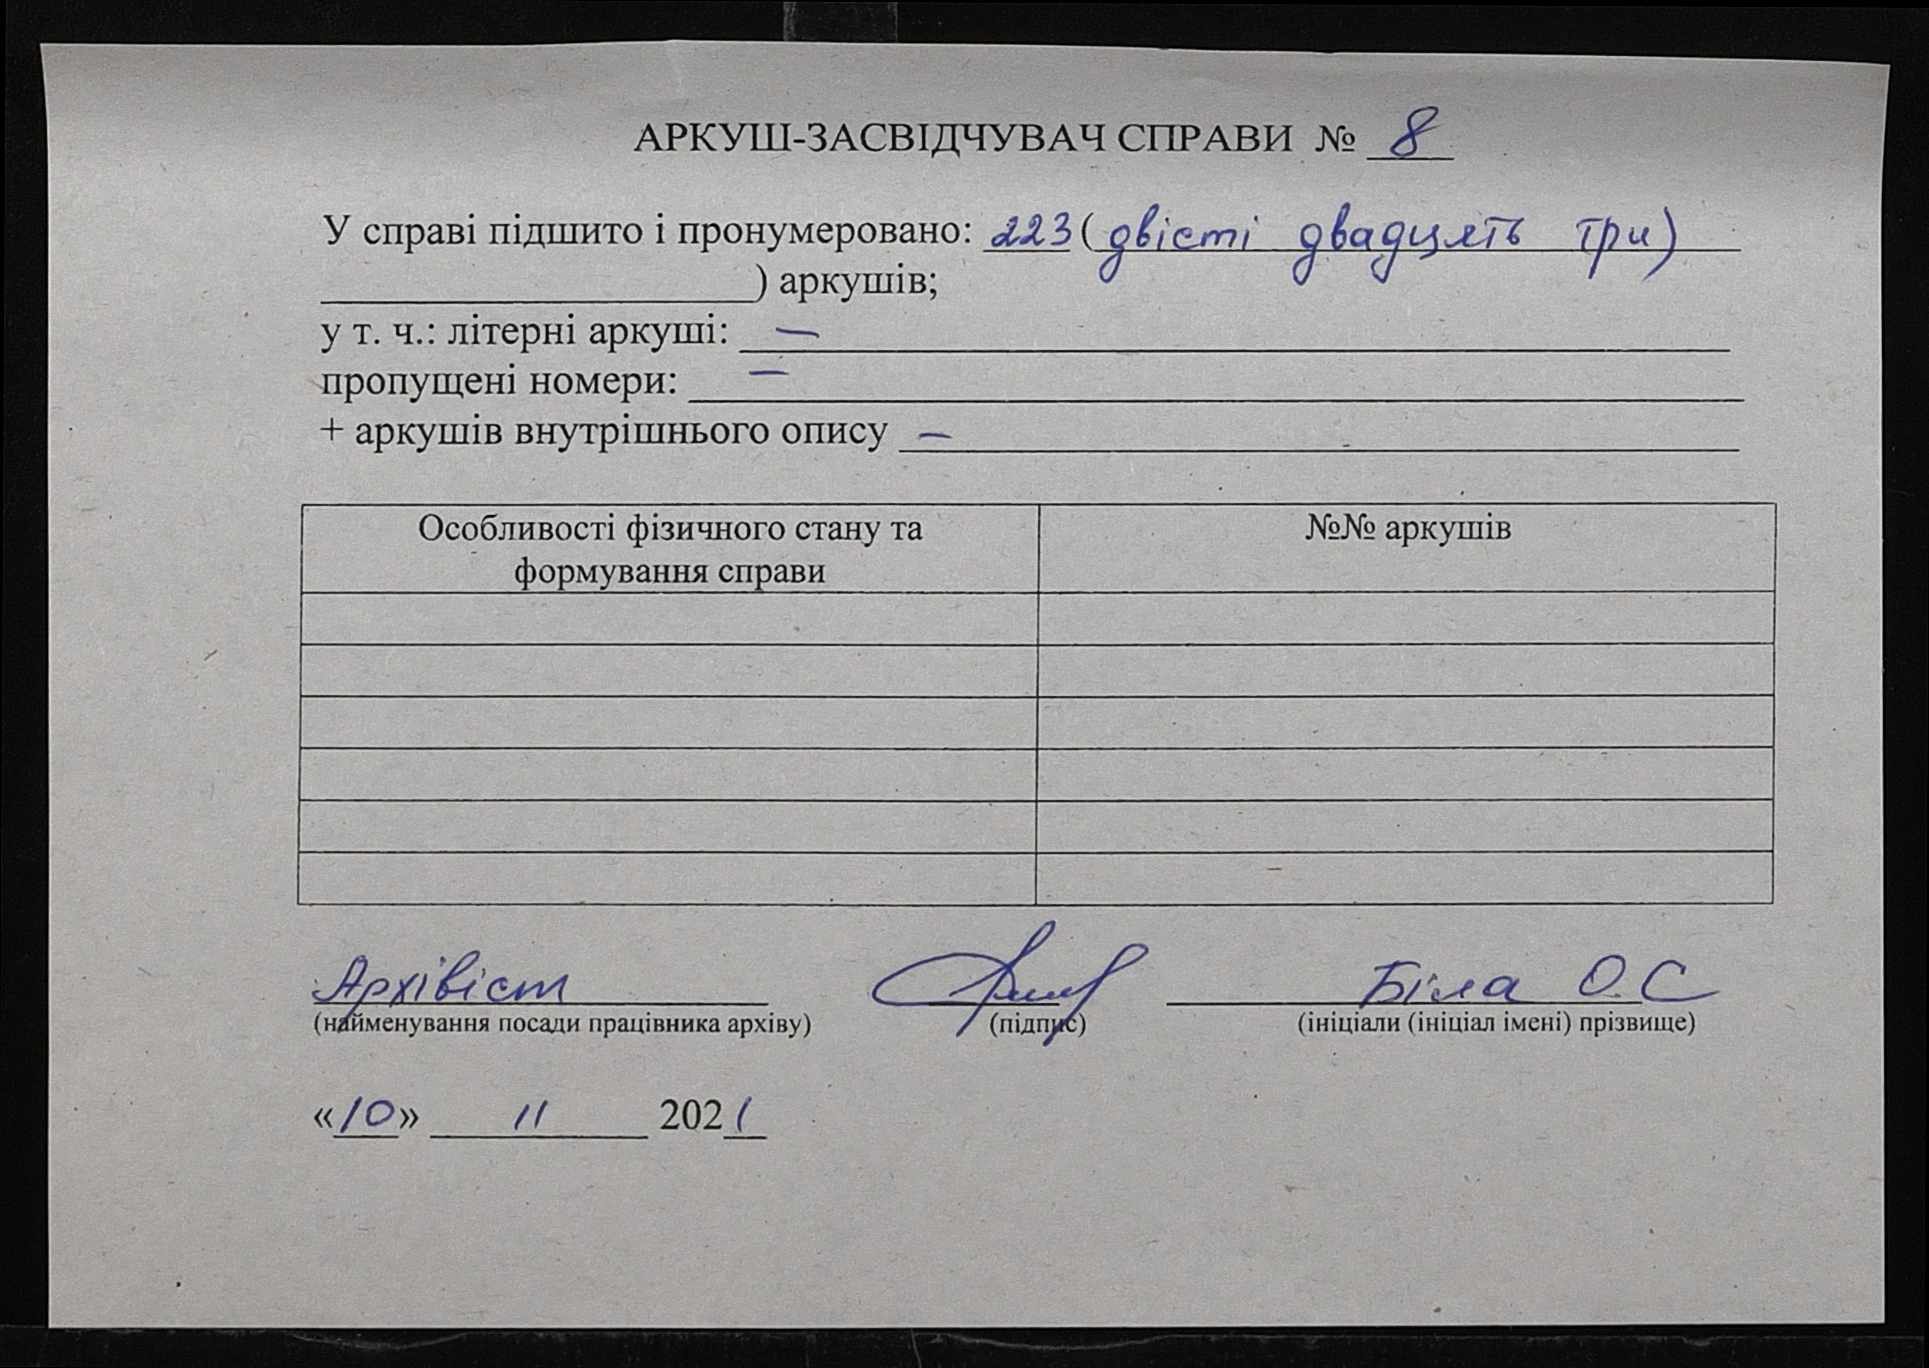 АРКУШ-ЗАСВІДЧУВАЧ СПРАВИ № 8
У справі підшито і пронумеровано: 223 (двісті двадцять три)
) аркушів;
у т. ч.: літерні аркуші: —
пропущені номери: —
+ аркушів внутрішнього опису —
Особливості фізичного стану та формування справи
№№ аркушів
Архівіст Біла О.С
(найменування посади працівника архіву) (підпис) (ініціали (ініціал імені) прізвище)
«10» 11 2021